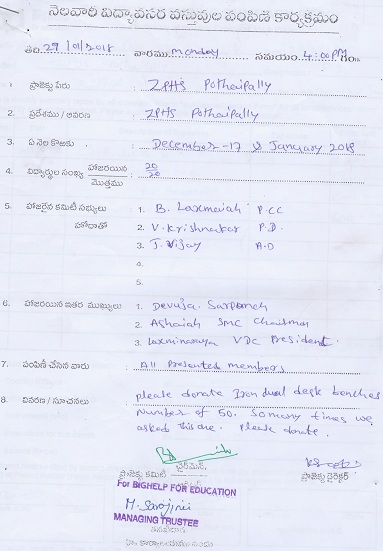 నెలవారీ విద్యావసర వస్తువుల పంపిణి కార్యక్రమం
తేది. 29/01/2018 వారము Monday సమయం. 4:00PM గం.
1. ప్రాజెక్టు పేరు : ZPHS Pothaipally
2. ప్రదేశము / ఆవరణ : ZPHS Pothaipally
3. ఏ నెల కొఱకు : December-17 & January 2018
4. విద్యార్థుల సంఖ్య హాజరయిన / మొత్తము : 20/20
5. హాజరైన కమిటీ సభ్యులు హోదాతో
1. B. Laxmaiah P.CC
2. V. Krishnakar P.D.
3. J. Vijay A.D
4.
5.
6. హాజరయిన ఇతర ముఖ్యులు
1. Devuja. Sarpanch
2. Ashaiah SMC Chairman
3. Laxminaraya VDC President.
7. పంపిణీ చేసిన వారు : All Presented members
8. వివరణ / సూచనలు : please donate Iron dual desk benches
Number of 50. Somany times we
asked this one. Please donate.
ప్రాజెక్టు కమిటీ ఛైర్మెన్,
ప్రాజెక్టు డైరెక్టర్
For BIGHELP FOR EDUCATION
M. Sarojini
MANAGING TRUSTEE